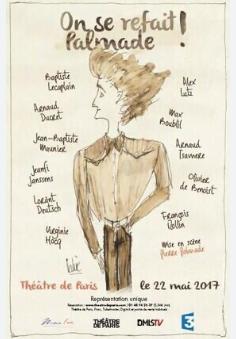 On se refait
Palmade !
Baptiste
Lecaplain
Alex
Lutz
Arnaud
Ducret
Max
Boublil
Jean-Baptiste
Maunier
Arnaud
Tsamere
Jeanfi
Janssens
Olivier
de Benoist
Lorànt
Deutsch
François
Rollin
Virginie
Hocq
Mise en scène
Pierre Palmade
Théâtre de Paris
le 22 mai 2017
Représentation unique
THÉÂTRE
DE PARIS
DMLSTV
3